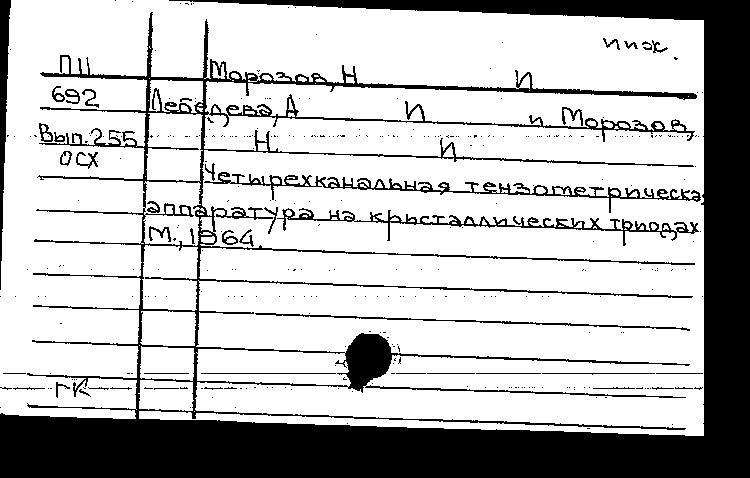 инж.
П11 Морозов, Н И
692 Лебедева, А И и Морозов,
Вып.255 Н. И
ОСХ Четырехканальная тензометрическая
аппаратура на кристаллических триодах
М., 1964.
ГК